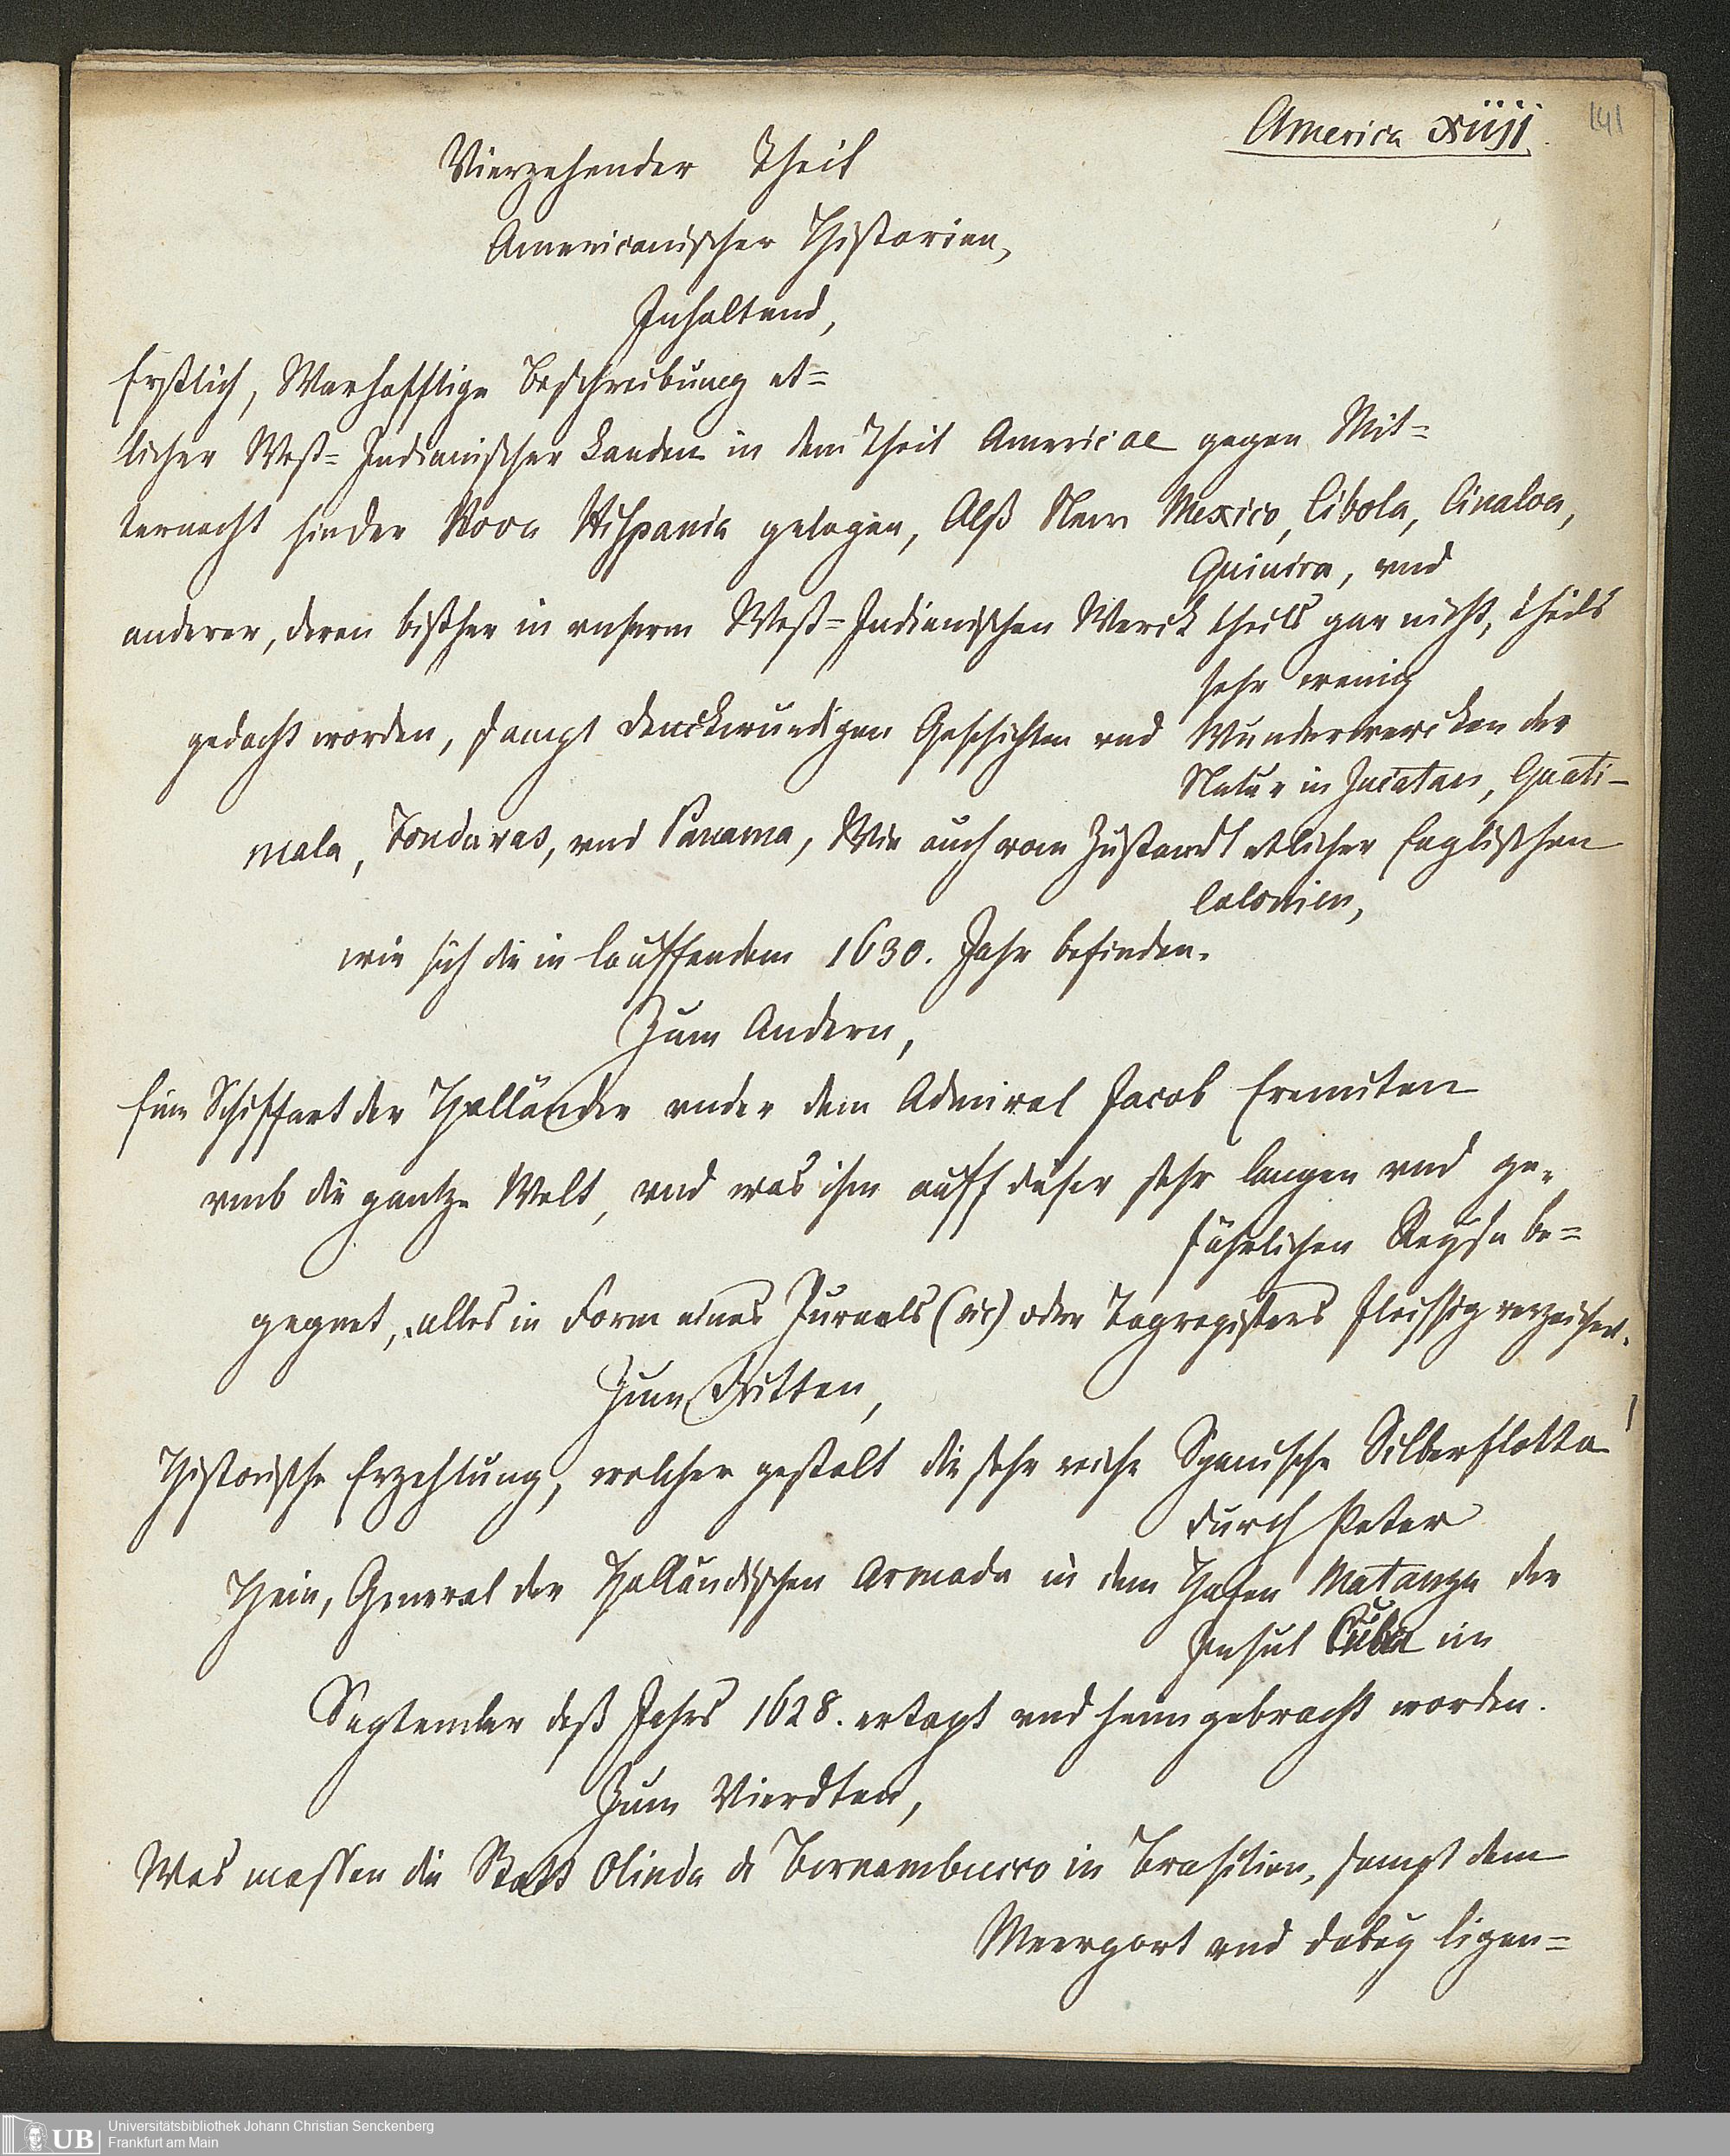 America xiiij.
141
Vierzehender Theil
Americanischer Historien,
Inhaltend,
Erstlich, Warhafftige Beschreibung et=
licher West=Indianischer Landen in dem Theil Americae gegen Mit=
ternacht hinder Nova Hispania gelegen, Alß New Mexico, Cibola, Cinaloa,
Quivira, vnd
anderer, deren bißher in vnserm West=Indianischen Werck theils gar nicht, theils
sehr wenig
gedacht worden, sampt denckwürdigen Geschichten vnd Wunderwercken der
Natur in Jucatan, Guati-
mala, Fonduras, vnd Panama, Wie auch vom Zustandt etlicher Englischen
Colonien,
wie sich die in lauffendem 1630. Jahr befinden.
Zum Andern,
Eine Schiffart der Holländer vnder dem Admiral Jacob Eremiten
vmb die gantze Welt, vnd was ihm auff dieser sehr langen vnd ge=
fährlichen Reyse be=
gegnet, alles in Form eines Jurnals (sic) oder Tagregisters fleissig verzeichnet.
Zum Dritten,
Historische Erzehlung, welcher gestalt die sehr reiche Spanische Silberflotta
durch Peter
Hein, General der Holländischen Armada in dem Hafen Matanza der
Insul Cuba im
September deß Jahrs 1628. ertapt vnd heimgebracht worden.
Zum Vierdten,
Was massen die Statt Olinda de Bernambucco in Brasilien, sampt dem
Meerport vnd dabey ligen=
UB
Universitätsbibliothek Johann Christian Senckenberg
Frankfurt am Main